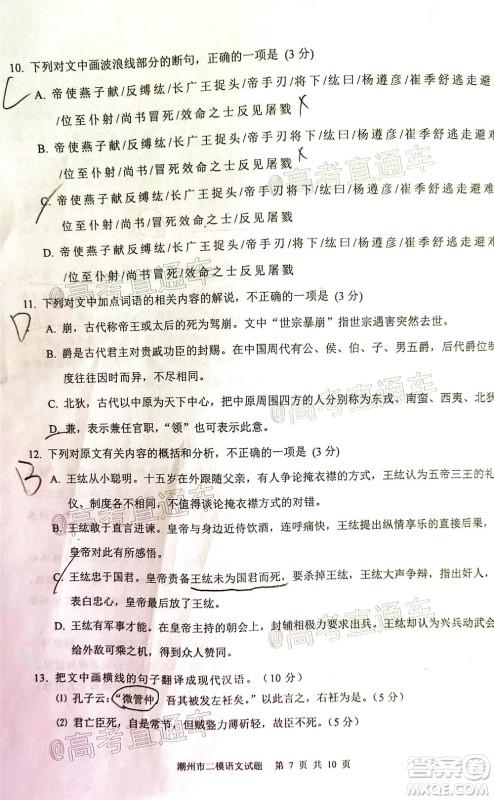 10. 下列对文中画波浪线部分的断句，正确的一项是 (3 分)
A. 帝使燕子献/反缚纮/长广王捉头/帝手刃/将下/纮曰/杨遵彦/崔季舒逃走避难
/位至仆射/尚书冒死/效命之士反见屠戮
B. 帝使燕子献/反缚纮/长广王捉头/帝手刃/将下/纮曰/杨遵彦/崔季舒逃走避难
/位至仆射/尚书/冒死效命之士反见屠戮
C. 帝使燕子献反缚纮/长广王捉头/帝手刃/将下/纮曰/杨遵彦/崔季舒逃走避难
/位至仆射/尚书/冒死效命之士/反见屠戮
D. 帝使燕子献反缚纮/长广王捉头/帝手刃/将下/纮曰/杨遵彦/崔季舒逃走避难
/位至仆射/尚书冒死/效命之士/反见屠戮
11. 下列对文中加点词语的相关内容的解说，不正确的一项是 (3 分)
D
A. 崩，古代称帝王或太后的死为驾崩。文中“世宗暴崩”指世宗突然去世。
B. 爵是古代君主对贵戚功臣的封赐。在中国周代有公、侯、伯、子、男五爵，后
C. 北狄，古代以中原为天下中心，把中原周围四方的人分为东夷、南蛮、西夷、北
D. 兼，表示兼任官职，“领”也可表示此意。
12. 下列对原文有关内容的概括和分析，不正确的一项是 (3 分)
B
A. 王纮从小聪明。十五岁在外跟随父亲，有人争论掩衣襟的方式，王纮说五帝三王的礼
仪、制度各不相同，不值得谈论掩衣襟方式的对错。
B. 王纮敢于直言进谏。皇帝与左右近侍饮酒，连呼痛快，王纮提出纵情享乐的后果，
皇帝对此有所感悟。
C. 王纮忠于国君。皇帝责备王纮未为国君而死，要杀掉王纮，王纮大声争辩，皇帝
放了王纮。
D. 王纮有军事才能。在与突厥作战中，显露出积极主动的态度。他还对当时兴兵动武
在朝廷上发表自己的看法。
13. 把文中画横线的句子翻译成现代汉语。（10 分）
⑴ 孔子云：“微管仲，吾其被发左衽矣。”以此言之，右衽为是。（5 分）
⑵ 君亡臣死，自是常节，但贼竖力薄斫轻，故臣不死。（5 分）
潮州市二模语文试题 第 7 页 共 10 页
@高考直通车
@高考直通车
@高考直通车